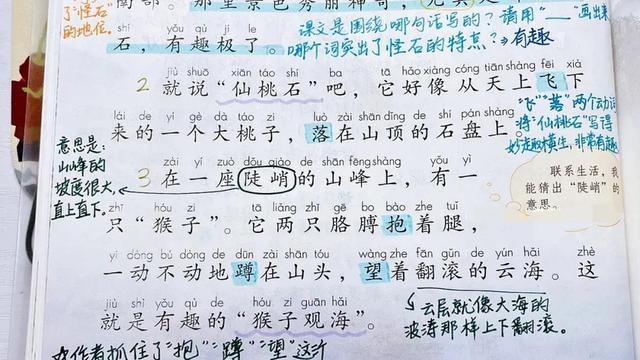 了"怪石"
的地位。
南部。那里景色秀丽神奇，尤其是
课文是围绕哪句话写的？请用"——"画出来
石，有趣极了。
哪个词突出了怪石的特点？→有趣
jiù shuō xiān táo shí ba tā hǎo xiàng cóng tiān shàng fēi xià
2 就说"仙桃石"吧，它好像从天上飞下
lái de yí gè dà táo zi luò zài shān dǐng de shí pán shàng
来的一个大桃子，落在山顶的石盘上。
"飞""落"两个动词
将"仙桃石"写得
妙趣横生，非常有趣
zài yí zuò dǒu qiào de shān fēng shàng yǒu yì
3 在一座陡峭的山峰上，有一
意思是：
山峰的
坡度很大，
直上直下。
联系生活，我
能猜出"陡峭"的
意思。
zhī hóu zi tā liǎng zhī gē bo bào zhe tuǐ
只"猴子"。它两只胳膊抱着腿，
yí dòng bú dòng de dūn zài shān tóu wàng zhe fān gǔn de yún hǎi zhè
一动不动地蹲在山头，望着翻滚的云海。这
jiù shì yǒu qù de hóu zi guān hǎi
就是有趣的"猴子观海"。
云层就像大海的
波涛那样上下翻滚。
作者抓住了"抱""蹲""望"这